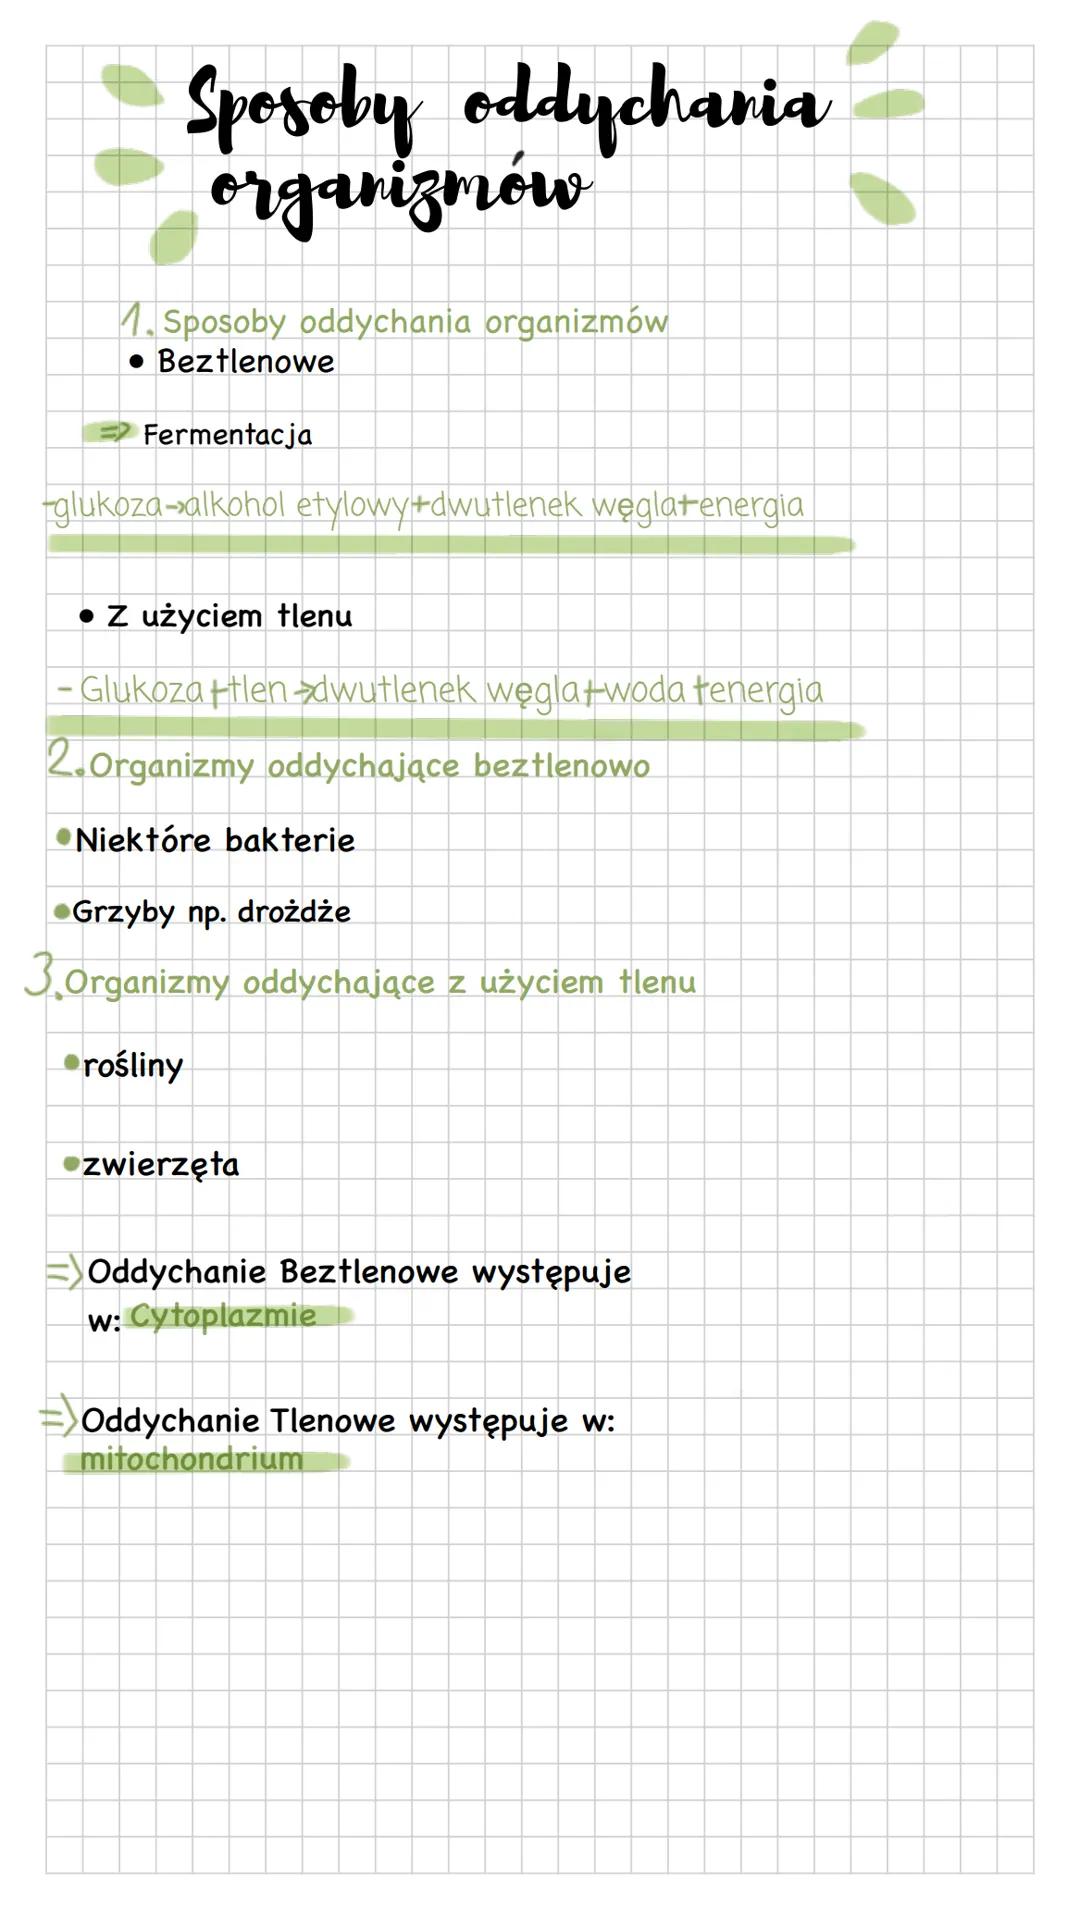 Sposoby oddychania
organizmów
1. Sposoby oddychania organizmów
• Beztlenowe
=> Fermentacja
-glukoza->alkohol etylowy+dwutlenek węgla+energia
• Z użyciem tlenu
- Glukoza+tlen->dwutlenek węgla+woda+energia
2.Organizmy oddychające beztlenowo
•Niektóre bakterie
•Grzyby np. drożdże
3.Organizmy oddychające z użyciem tlenu
•rośliny
•zwierzęta
=>Oddychanie Beztlenowe występuje
w: Cytoplazmie
=>Oddychanie Tlenowe występuje w:
mitochondrium